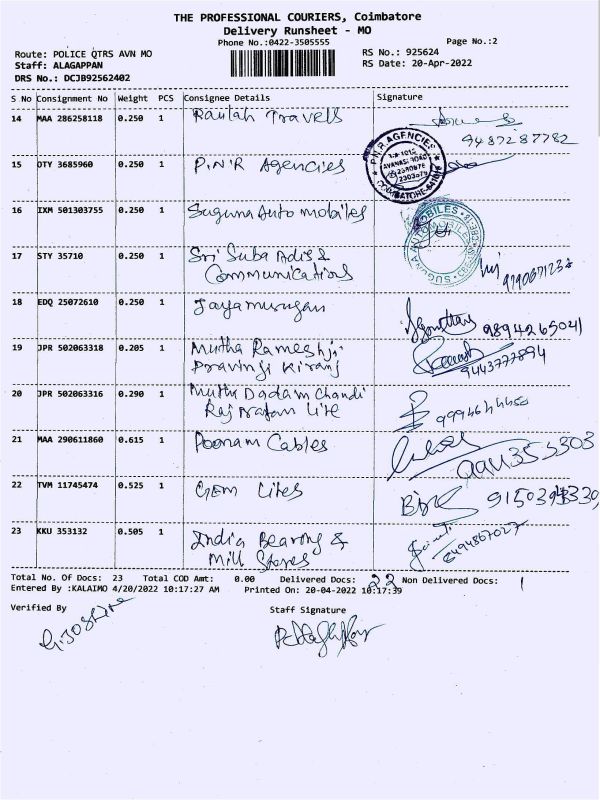 THE PROFESSIONAL COURIERS, Coimbatore
Delivery Runsheet - MO
Phone No.:0422-3505555
Page No.:2
Route: POLICE QTRS AVN MO
RS No.: 925624
Staff: ALAGAPPAN
RS Date: 20-Apr-2022
DRS No.: DCJB92562402
S No Consignment No Weight PCS Consignee Details Signature
14 MAA 286258118 0.250 1 Rautah Travels
9487287782
15 OTY 3685960 0.250 1 P.N.R Agencies
P.N.R. AGENCIES
AVANASI ROAD
COIMBATORE
16 IXM 501303755 0.250 1 Suguna Auto mobiles
SUGUNA AUTOMOBILES
17 STY 35710 0.250 1 Sri Suba Adis &
Communications
18 EDQ 25072610 0.250 1 Jayamurugan
9894265041
19 JPR 502063318 0.205 1 Mutha Rameshji
Pravinji Kiranj
9443777894
20 JPR 502063316 0.290 1 Muthu Dadam Chandi
Raj Ratan Lite
21 MAA 290611860 0.615 1 Poonam Cables
22 TVM 11745474 0.525 1 GEM Lites
23 KKU 353132 0.505 1 India Bearing &
Mill Stores
Total No. Of Docs: 23 Total COD Amt: 0.00 Delivered Docs: 22 Non Delivered Docs: 1
Entered By :KALAIMO 4/20/2022 10:17:27 AM Printed On: 20-04-2022 10:17:39
Verified By Staff Signature